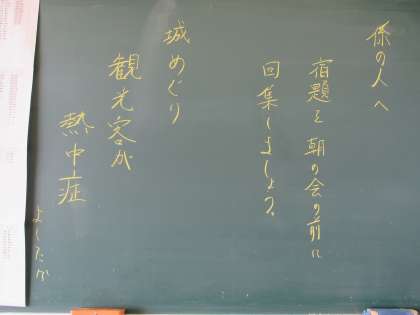 係の人へ
宿題を朝の会の前に
回集しましょう。
城めぐり
観光客が
熱中症
よしたか